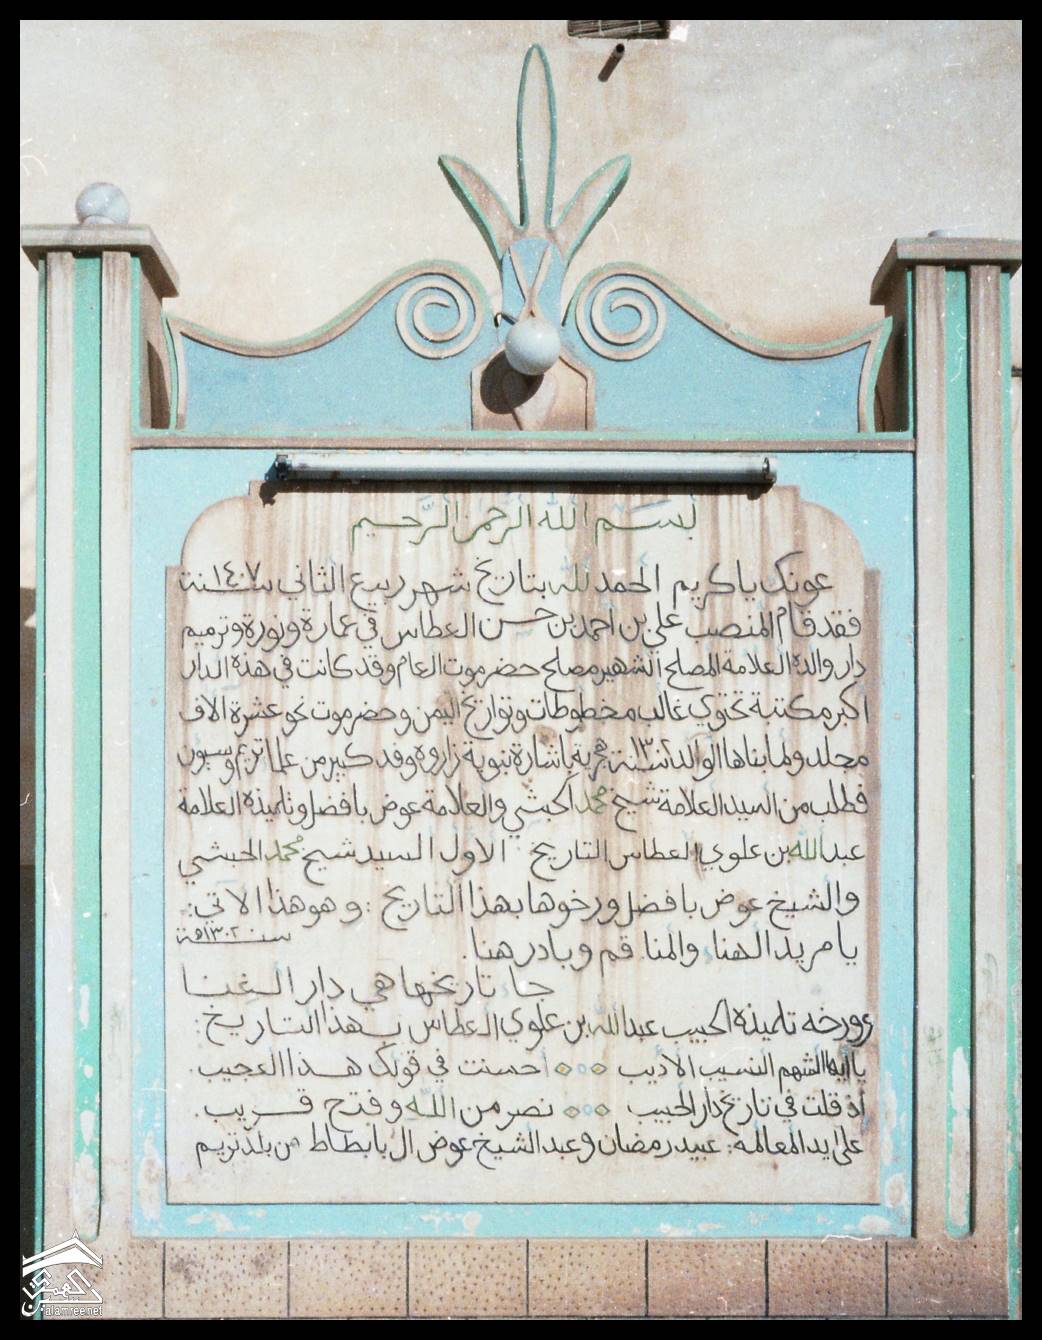 بسم الله الرحمن الرحيم
عونك يا كريم الحمد لله بتاريخ شهر ربيع الثاني سنة ١٤٠٧
فقد قام المنصب علي بن احمد بن حسن العطاس في عمارة ونورة وترميم
دار والده العلامة المصلح الشهير مصلح حضرموت العام وقد كانت في هذه الدار
اكبر مكتبة تحتوي غالب مخطوطات وتواريخ اليمن وحضرموت نحو عشرة الاف
مجلد ولما بناها الوالد سنة هجرية باشارة نبوية زاروه وفد كبير من علما تريم وسيون
فطلب من السيد العلامة شيخ محمد الحبشي والعلامة عوض بافضل وتلميذه العلامة
عبدالله بن علوي العطاس التاريخ الاول السيد شيخ محمد الحبشي
والشيخ عوض بافضل ورخوها بهذا التاريخ : وهو هذا الاتي :
يا مريد الهناء والمنا قم وبادر هنا . سنة ١٣٠٢هـ
جاء تاريخها هي دار الغنا
وورخه تلميذه الحبيب عبدالله بن علوي العطاس بهذا التاريخ :
يا ايه الشهم النسيب الاديب احسنت في قولك هذا العجيب .
اذ قلت في تاريخ دار الحبيب نصر من الله وفتح قريب .
على يد المعالمة : عبيد رمضان وعبد الشيخ عوض ال بابطاط من بلد تريم
alamree.net